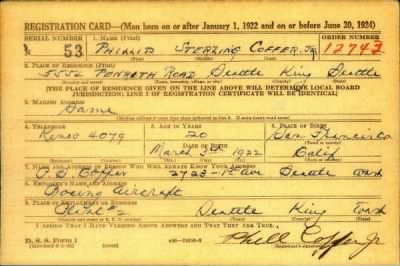 REGISTRATION CARD—(Men born on or after January 1, 1922 and on or before June 30, 1924)
SERIAL NUMBER 1. NAME (Print) ORDER NUMBER
53 Sterling Coffer, Jr 12743
2. PLACE OF RESIDENCE (Print)
Road Seattle King Seattle
(THE PLACE OF RESIDENCE GIVEN ON THE LINE ABOVE WILL DETERMINE LOCAL BOARD
JURISDICTION; LINE 2 OF REGISTRATION CERTIFICATE WILL BE IDENTICAL)
3. MAILING ADDRESS
Same
4. TELEPHONE 5. AGE IN YEARS 6. PLACE OF BIRTH
4079 20 San Francisco
DATE OF BIRTH
March 1922 Calif
7. NAME AND ADDRESS OF PERSON WHO WILL ALWAYS KNOW YOUR ADDRESS
Coffer 2723-1st ave Seattle Wash
8. EMPLOYER'S NAME AND ADDRESS
Boeing Aircraft
Plant #2 Seattle King Wash
I AFFIRM THAT I HAVE VERIFIED ABOVE ANSWERS AND THAT THEY ARE TRUE.
D. S. S. Form 1
Coffer Jr